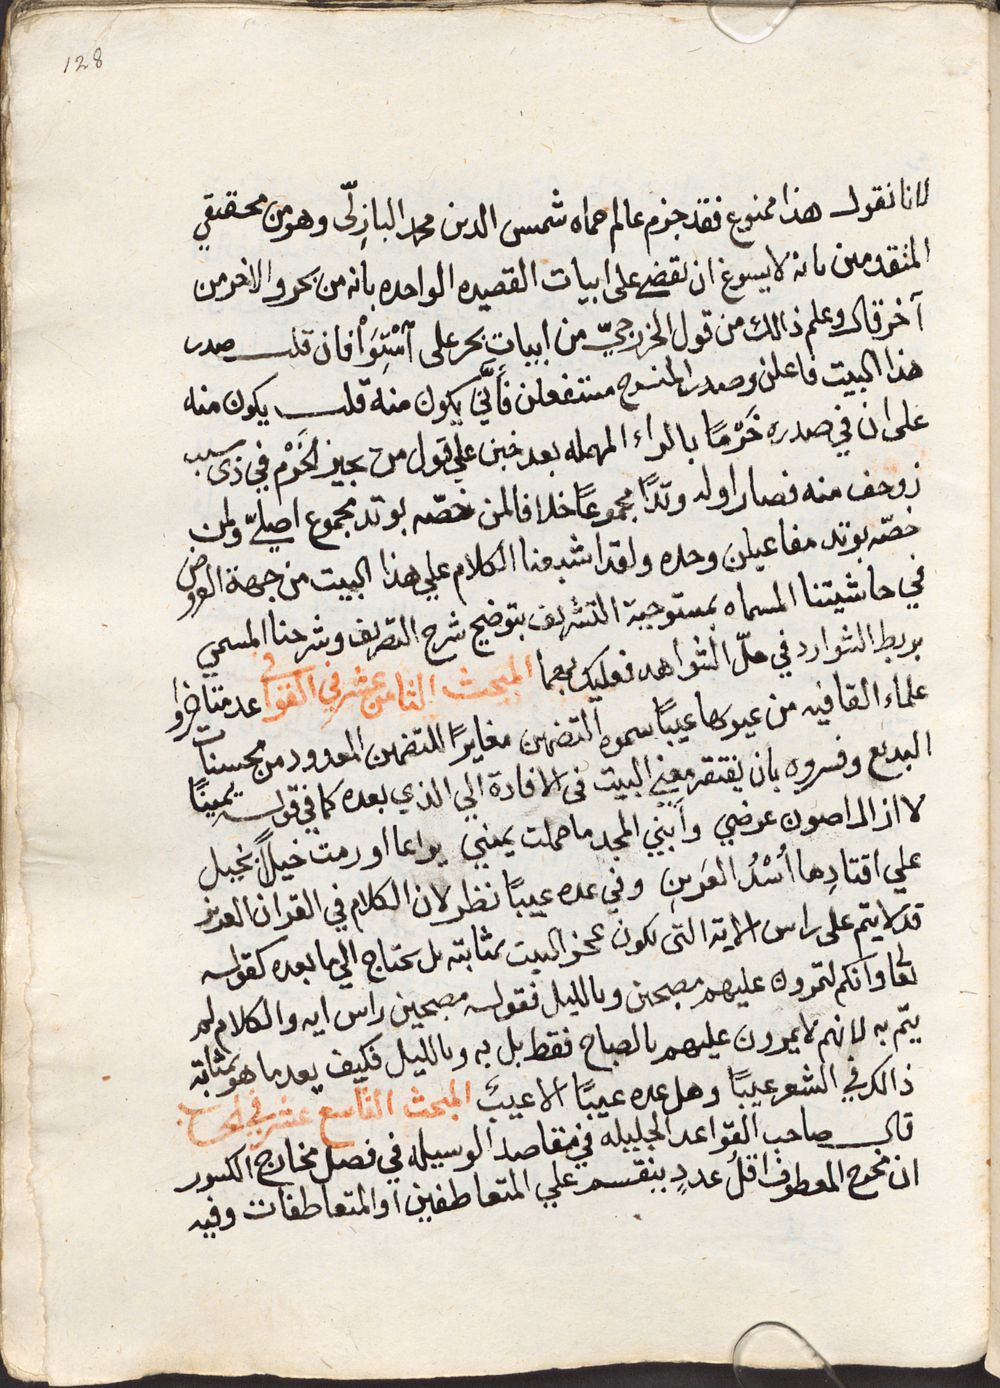 128
لانا نقول هذا ممنوع فقد جزم عالم حماه شمس الدين محمد البازِلّى وهو من محققي
المتقدمين بانه لا يسوغ ان نقضي على ابيات القصيده الواحده بانه من بحر والاخر من
آخر قال وعلم ذالك من قول الخزرجيّ من ابيات بحر على آسْتِوَاْ فان قلت صدر
هذا البيت فاعلن وصدر المنسرح مستفعلن فأنَّي يكون منه قلت يكون منه
على ان في صدره خَرْمًا بالراء المهمله بعد خبن علي قول من يجيز الخَرْم في ذى سبب
زوحف منه فصار اوله وتدًا مجموعًا خلافا لمن خصّه بوتد مجموع اصليّ ولمن
خصّه بوتد مفاعيلن وحده ولقد اشبعنا الكلام علي هذا البيت من جهة العروض
في حاشيتنا المسماه بمستوجبة التشريف بتوضيح شرح التصريف وبشرحنا المسمي
بربط الشوارد في حلّ الشواهد فعليك بهما المبحث الثامن عشر في القوافي عد متناظروا
علماء القافيه من عيوبها عيبًا سموه التضمين مغايرًا للتضمين المعدود من محسنات
البديع وفسروه بان يفتقر معني البيت في الافادة الي الذي بعده كما في قوله يمينًا
لا ازال اصون عرضي وأبني المجد ما حملت يميني يراعا او رمت خيلاً بخيل
علي اقتادِها اُسْدُ العَرين وفي عده عيبًا نظر لان الكلام في القران العزيز
قد لا يتم على راس الاية التي تكون عجز البيت بمثابته بل يحتاج الي ما بعده كقوله
تعا وانكم لتمرون عليهم مصبحين وبالليل فقوله مصبحين راس ايه والكلام لم
يتم به لانهم لا يمرون عليهم بالصباح فقط بل به وبالليل فكيف يعد ما هو بمثابة
ذالك في الشعر عيبًا وهل عده عيبًا الا عيبٌ المبحث التاسع عشر في
قال صاحب القواعد الجليله في مقاصد الوسيله في فصل مخارج الكسور
ان مخرج المعطوف اقلُ عددٍ ينقسم علي المتعاطفين او المتعاطفات وفيه